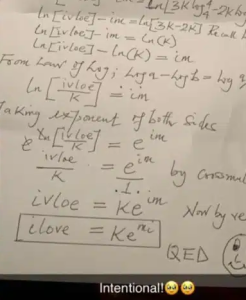 ln[3K log₄4 - 2K
ln[ivloe] - im = ln[3K - 2K] Recall
ln[ivloe] - im = ln(K)
ln[ivloe] - ln(K) = im
From Law of Log; Log a - Log b = Log
ln[ivloe/K] = im
Taking exponent of both sides
e^ln[ivloe/K] = e^im
ivloe/K = e^im/1 by crossmul
ivloe = Ke^im Now by re
ilove = Ke^mi
QED
Intentional!🥺🥺